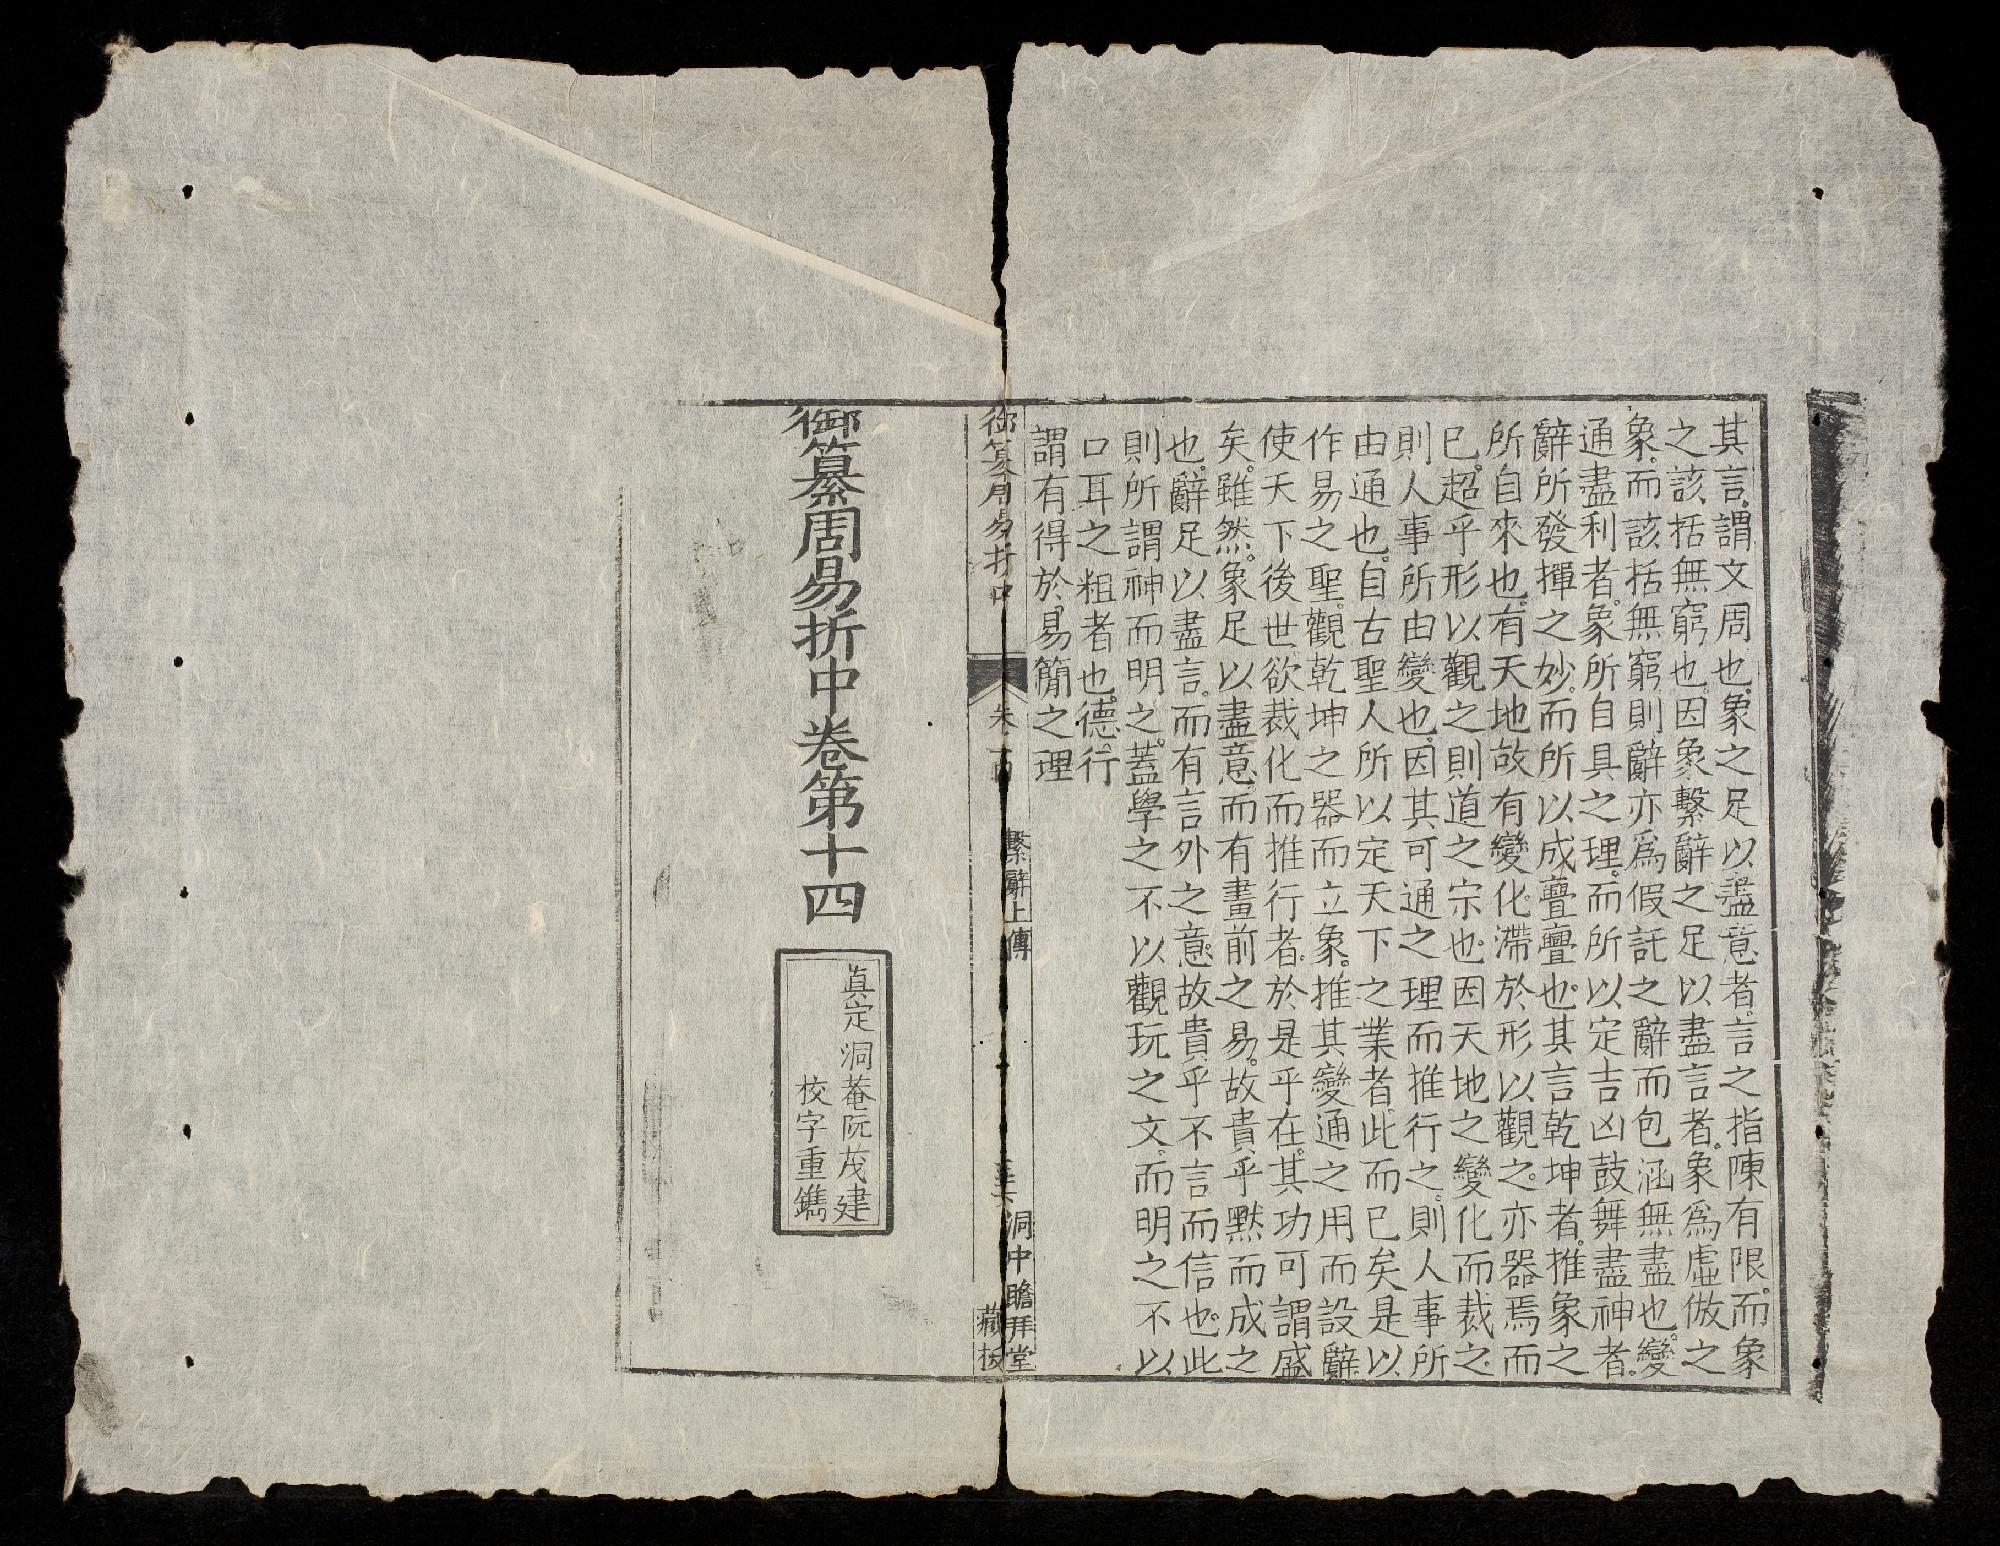 其言謂文周也象之足以盡意者言之指陳有限而象
之該括無窮也因象繫辭之足以盡言者象爲虛倣之
象而該括無窮則辭亦爲假託之辭而包涵無盡也變
通盡利者象所自具之理而所以定吉凶鼓舞盡神者
辭所發揮之妙而所以成亹亹也其言乾坤者推象之
所自來也有天地故有變化滯於形以觀之亦器焉而
已超乎形以觀之則道之宗也因天地之變化而裁之
則人事所由變也因其可通之理而推行之則人事所
由通也自古聖人所以定天下之業者此而已矣是以
作易之聖觀乾坤之器而立象推其變通之用而設辭
使天下後世欲裁化而推行者於是乎在其功可謂盛
矣雖然象足以盡意而有畫前之易故貴乎默而成之
也辭足以盡言而有言外之意故貴乎不言而信也此
則所謂神而明之蓋學之不以觀玩之文而明之不以
口耳之粗者也德行
謂有得於易簡之理
御纂周易折中
繫辭上傳
洞中瞻拜堂
藏板
御纂周易折中卷第十四
真定洞菴阮茂建
校字重鐫